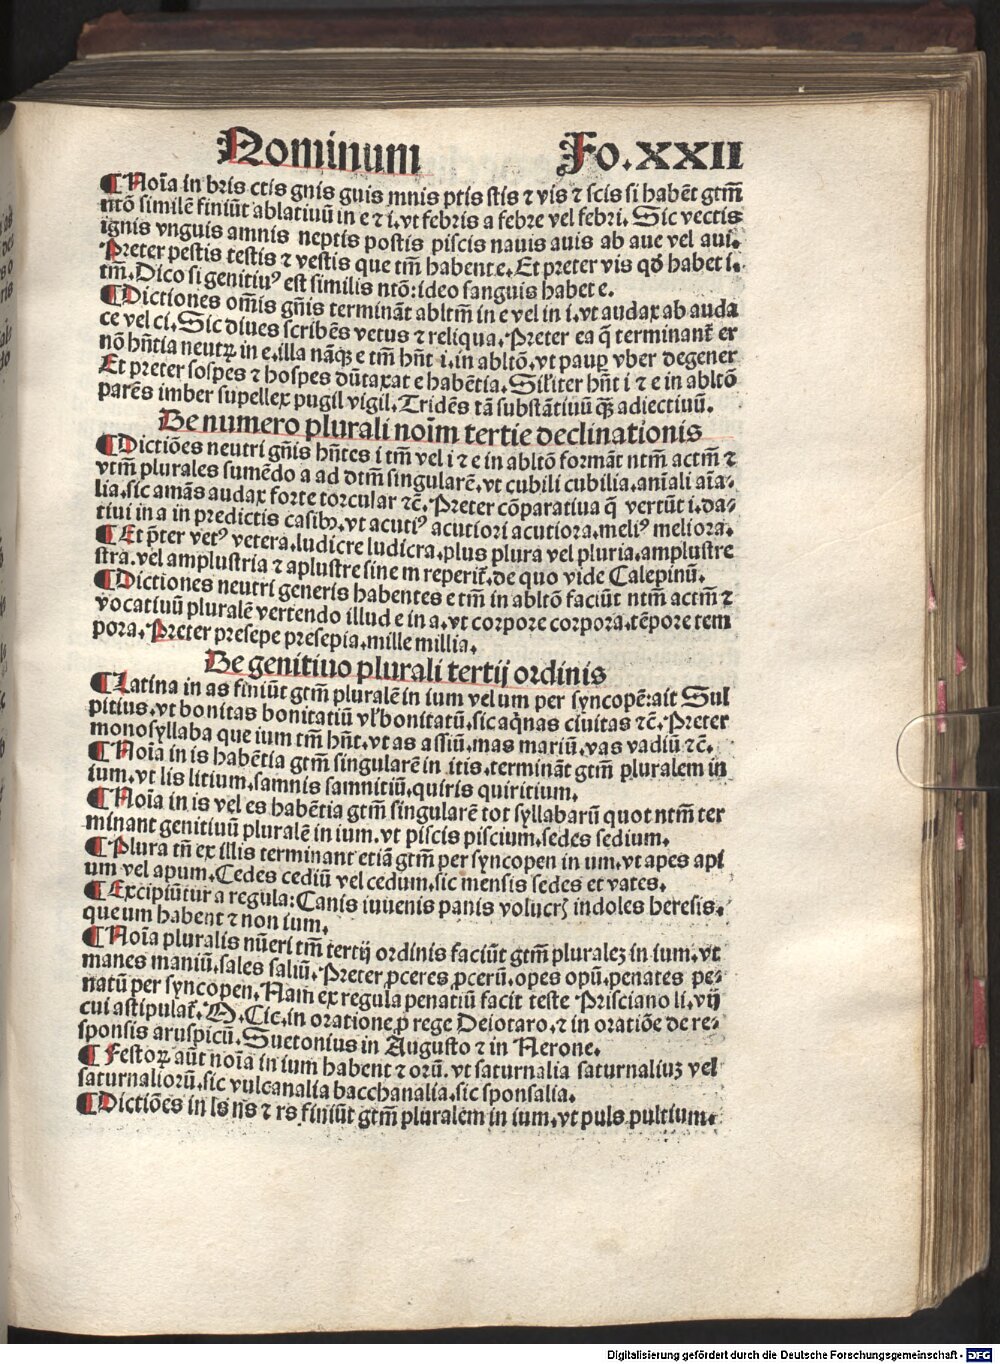 Nominum Fo.XXII
¶Noīa in bris ctis gnis guis mnis ptis stis ⁊ vis ⁊ scis si habēt gtm̄
ntō similē finiūt ablatiuū in e ⁊ i.vt febris a febre vel febri. Sic vectis
ignis vnguis amnis neptis postis piscis nauis auis ab aue vel aui.
Preter pestis testis ⁊ vestis que tm̄ habent e. Et preter vis qđ habet i.
tm̄. Dico si genitiuꝰ est similis ntō: ideo sanguis habet e.
¶Dictiones om̄is gn̄is termināt abltm̄ in e vel in i.vt audax ab auda
ce vel ci. Sic diues scribēs vetus ⁊ reliqua. Preter ea q̄ terminant̄ er
nō hn̄tia neutꝝ in e.illa nāqꝫ e tm̄ hn̄t i.in abltō.vt paup̱ vber degener
Et preter sospes ⁊ hospes dūtaxat e habētia. Sil'iter hn̄t i ⁊ e in abltō
parēs imber supellex pugil vigil. Tridēs tā substātiuū qꝫ̄ adiectiuū.
De numero plurali noīm tertie declinationis
¶Dictiōes neutri gn̄is hn̄tes i tm̄ vel i ⁊ e in abltō formāt ntm̄ actm̄ ⁊
vtm̄ plurales sumēdo a ad dtm̄ singularē.vt cubili cubilia.aīali aīa⸗
lia.sic amās audax forte torcular ⁊c̄. Preter cōparatiua q̄ vertūt i.da⸗
tiui in a in predictis casibꝰ.vt acutiꝰ acutiori acutiora.meliꝰ meliora.
¶Et p̄ter vetꝰ vetera.ludicre ludicra.plus plura vel pluria.amplustre
stra.vel amplustria ⁊ aplustre sine m reperit̄.de quo vide Calepinū.
¶Dictiones neutri generis habentes e tm̄ in abltō faciūt ntm̄ actm̄ ⁊
vocatiuū pluralē vertendo illud e in a.vt corpore corpora.tēpore tem
pora. Preter presepe presepia.mille millia.
De genitiuo plurali tertij ordinis
¶Latina in as finiūt gtm̄ pluralē in ium vel um per syncopē:ait Sul
pitius.vt bonitas bonitatiū vl' bonitatū.sic aq̄nas ciuitas ⁊c̄. Preter
monosyllaba que ium tm̄ hn̄t.vt as assiū.mas mariū.vas vadiū ⁊c̄.
¶Noīa in is habētia gtm̄ singularē in itis.termināt gtm̄ pluralem in
ium.vt lis litium.samnis samnitiū.quiris quiritium.
¶Noīa in is vel es habētia gtm̄ singularē tot syllabarū quot ntm̄ ter
minant genitiuū pluralē in ium. vt piscis piscium.sedes sedium.
¶Plura tn̄ ex illis terminant etiā gtm̄ per syncopen in um.vt apes api
um vel apum. Cedes cediū vel cedum.sic mensis sedes et vates.
¶Excipiūtur a regula: Canis iuuenis panis volucrꝭ indoles heresis.
que um habent ⁊ non ium.
¶Noīa pluralis nūeri tm̄ tertij ordinis faciūt gtm̄ pluralēꝫ in ium.vt
manes maniū.sales saliū. Preter ꝓceres ꝓcerū.opes opū.penates pe⸗
natū per syncopen. Nam ex regula penatiū facit teste Prisciano li.vij
cui astipulat̄. M. Cic.in oratione ꝓ rege Deiotaro.⁊ in oratiōe de re⸗
sponsis aruspicū. Suetonius in Augusto ⁊ in Nerone.
¶Festoꝝ aūt noīa in ium habent ⁊ orū. vt saturnalia saturnaliuꝫ vel
saturnaliorū.sic vulcanalia bacchanalia.sic sponsalia.
¶Dictiōes in ls ns ⁊ rs finiūt gtm̄ pluralem in ium.vt puls pultium.
Digitalisierung gefördert durch die Deutsche Forschungsgemeinschaft - DFG